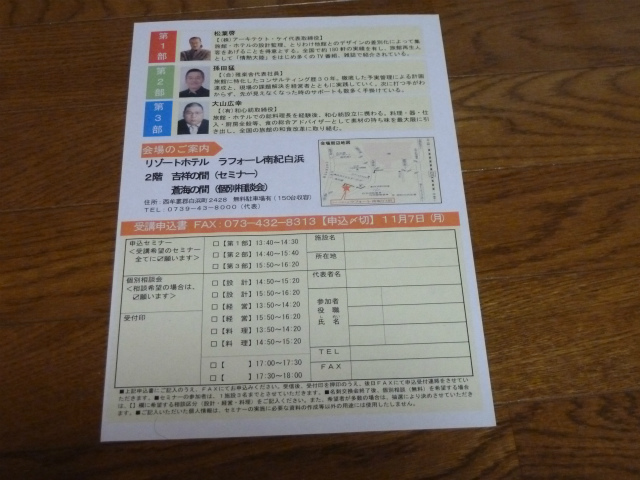 第1部
松葉啓
【(株)アーキテクト・ケイ代表取締役】
旅館・ホテルの設計監理、とりわけ他館とのデザインの差別化によって集
客をあげることを得意とする。全国で約180軒の実績を有し、旅館再生人
として「情熱大陸」をはじめ多くのTV番組、雑誌で紹介されている。
第2部
孫田猛
【(合)飛東舎代表社員】
旅館に特化したコンサルティング歴30年。徹底した予実管理による計画
達成と、現場の課題解決を経営者とともに実践していく。次に打つ手がわ
からず、先が見えなくなった時のサポートも数多く手掛けている。
第3部
大山広幸
【(有)和心給取締役】
旅館・ホテルでの総料理長を経験後、和心給設立に携わる。料理・器・仕
入・厨房全般等、食の総合アドバイザーとして素材の持ち味を最大限に引
き出し、全国の旅館の和食改革に取り組む。
会場のご案内
リゾートホテル ラフォーレ南紀白浜
2階 吉祥の間(セミナー)
蒼海の間(個別相談会)
住所:西牟婁郡白浜町2428 無料駐車場有(150台収容)
TEL:0739-43-8000(代表)
会場周辺地図
受講申込書 FAX:073-432-8313【申込〆切】11月7日(月)
申込セミナー
<受講希望のセミナー
全てに☑願います>
□【第1部】13:40~14:30
□【第2部】14:40~15:40
□【第3部】15:50~16:20
個別相談会
<相談希望の場合は、
☑願います>
受付印
□【設 計】14:50~15:20
□【設 計】15:50~16:20
□【経 営】13:50~14:20
□【経 営】15:50~16:20
□【料 理】13:50~14:20
□【料 理】14:50~15:20
□【 】17:00~17:30
□【 】17:30~18:00
施設名
所在地
代表者名
参加者
役 職
氏 名
TEL
FAX
■上記申込書にご記入のうえ、FAXにてお申込みください。受領後、受付印を押印のうえ、後日FAXにて申込受付連絡をさせてい
ただきます。■セミナーの参加者は、1施設3名までとさせていただきます。■名刺交換会終了後、個別相談(無料)を希望する場合
は、【】欄に希望する相談区分(設計・経営・料理)をご記入ください。また、希望者が多数の場合は、抽選により決めさせていただき
ます。■ご記入いただいた個人情報は、セミナーの実施に必要な資料の作成等以外の用途には使用いたしません。